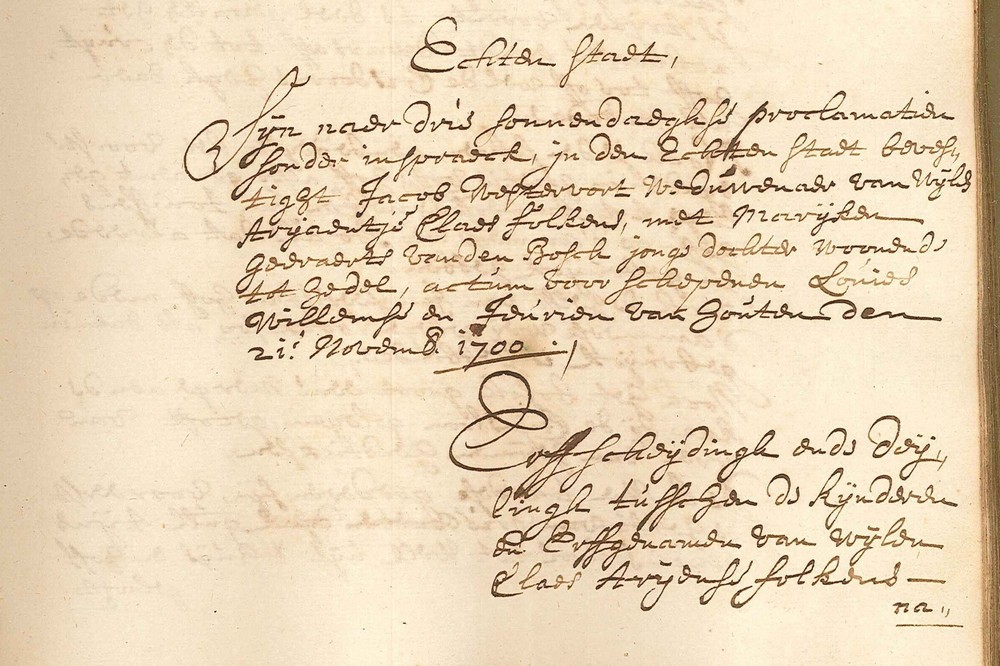 Echten staet,
Sijn naer drie sonnendaeghse proclamatien
sonder inspraeck, in den Echten staet beves,,
tight Jacob Westervort Weduwenaer van Wijle
Arijaentje Claes folkens, met Marijken
Geeraerts vanden Bosch jonge dochter woonende
tot hedel, actum voor schepenen Louies
Willemse en Jeurien van Houten den
21.e Novemb. 1700.
Erffscheijdingh ende Deij,,
lingh tusschen de kijnderen
en Erffgenamen van wijlen
Claes Arijense folkens
na,,